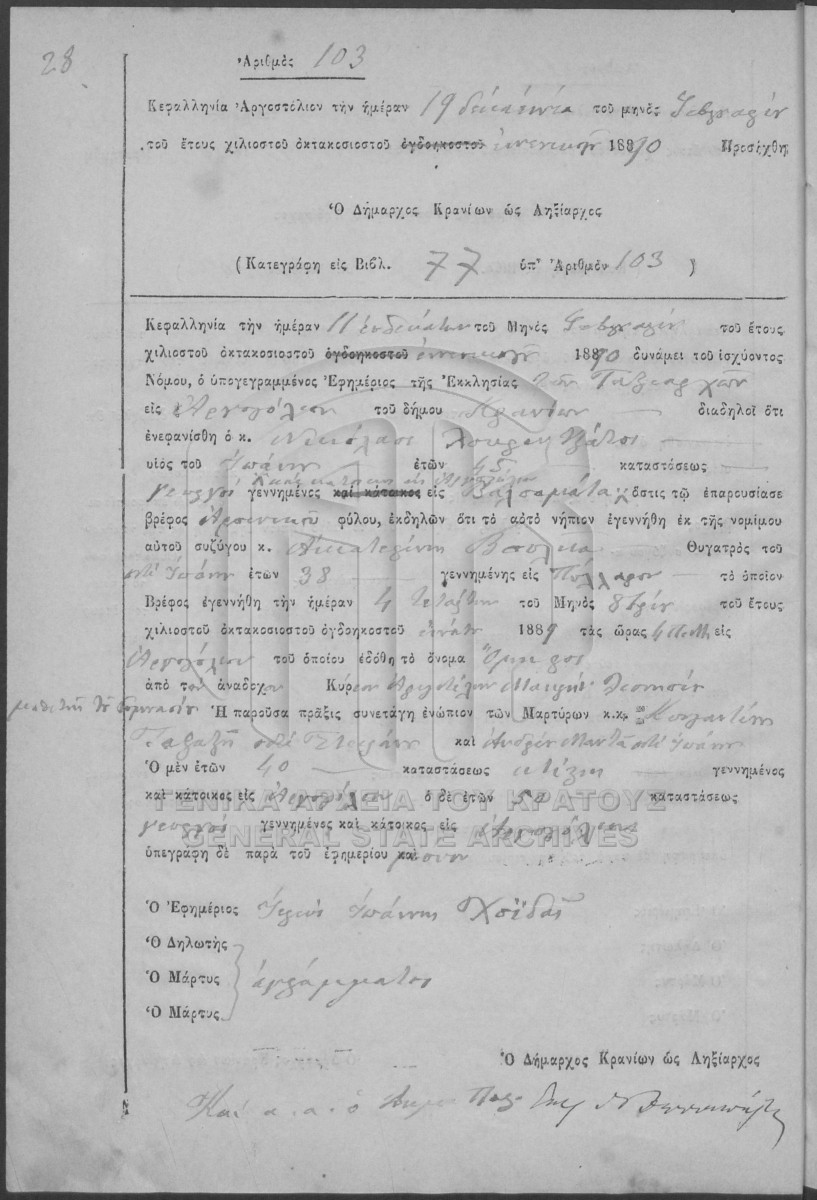 28
Ἀριθμὸς 103
Κεφαλληνία Ἀργοστόλιον τὴν ἡμέραν 19 δεκαεννέα τοῦ μηνὸς
τοῦ ἔτους χιλιοστοῦ ὀκτακοσιοστοῦ ὀγδοηκοστοῦ 1890 Προσήχθη
Ὁ Δήμαρχος Κρανίων ὡς Ληξίαρχος
(Κατεγράφη εἰς Βιβλ. 77 ὑπ' Ἀριθμὸν 103)
Κεφαλληνία τὴν ἡμέραν 11 ἑνδεκάτην τοῦ Μηνὸς τοῦ ἔτους
χιλιοστοῦ ὀκτακοσιοστοῦ ὀγδοηκοστοῦ 1890 δυνάμει τοῦ ἰσχύοντος
Νόμου, ὁ ὑπογεγραμμένος Ἐφημέριος τῆς Ἐκκλησίας τῶν Ταξιαρχῶν
εἰς Ἀργοστόλιον τοῦ δήμου Κρανίων διαδηλοῖ ὅτι
ἐνεφανίσθη ὁ κ. Νικόλαος
υἱὸς τοῦ Ἰωάννη ἐτῶν 45 καταστάσεως
καὶ κάτοικος εἰς Ἀργοστόλιον
γεωργός γεννημένος καὶ κάτοικος εἰς Βαλσαμάτα ὅστις τῷ ἐπαρουσίασε
βρέφος Ἀρσενικοῦ φύλου, ἐκδηλῶν ὅτι τὸ αὐτὸ νήπιον ἐγεννήθη ἐκ τῆς νομίμου
αὐτοῦ συζύγου κ. Αἰκατερίνης Θυγατρὸς τοῦ
ποτέ Ἰωάννη ἐτῶν 38 γεννημένης εἰς Πύλλαρον τὸ ὁποῖον
Βρέφος ἐγεννήθη τὴν ἡμέραν 4 τετάρτην τοῦ Μηνὸς 8βρίου τοῦ ἔτους
χιλιοστοῦ ὀκτακοσιοστοῦ ὀγδοηκοστοῦ ἐνάτου 1889 τὰς ὥρας 4 εἰς
Ἀργοστόλιον τοῦ ὁποίου ἐδόθη τὸ ὄνομα Ὅμηρος
ἀπὸ τὸν ἀνάδοχον Κύριον Ἀριστοτέλην
μαθητὴν τοῦ Γυμνασίου Ἡ παροῦσα πρᾶξις συνετάγη ἐνώπιον τῶν Μαρτύρων κ.κ.
ποτέ καὶ Ἀνδρέα ποτέ Ἰωάννη
Ὁ μὲν ἐτῶν 40 καταστάσεως γεννημένος
καὶ κάτοικος εἰς Ἀργοστόλιον ὁ δὲ ἐτῶν 50 καταστάσεως
γεωργός γεννημένος καὶ κάτοικος εἰς Ἀργοστόλιον
ὑπεγράφη δὲ παρὰ τοῦ ἐφημερίου καὶ μόνου
ΓΕΝΙΚΑ ΑΡΧΕΙΑ ΤΟΥ ΚΡΑΤΟΥΣ
GENERAL STATE ARCHIVES
Ὁ Ἐφημέριος Ἱερεύς Ἰωάννης Χοϊδᾶς
Ὁ Δηλωτὴς
Ὁ Μάρτυς ἀγράμματοι
Ὁ Μάρτυς
Ὁ Δήμαρχος Κρανίων ὡς Ληξίαρχος